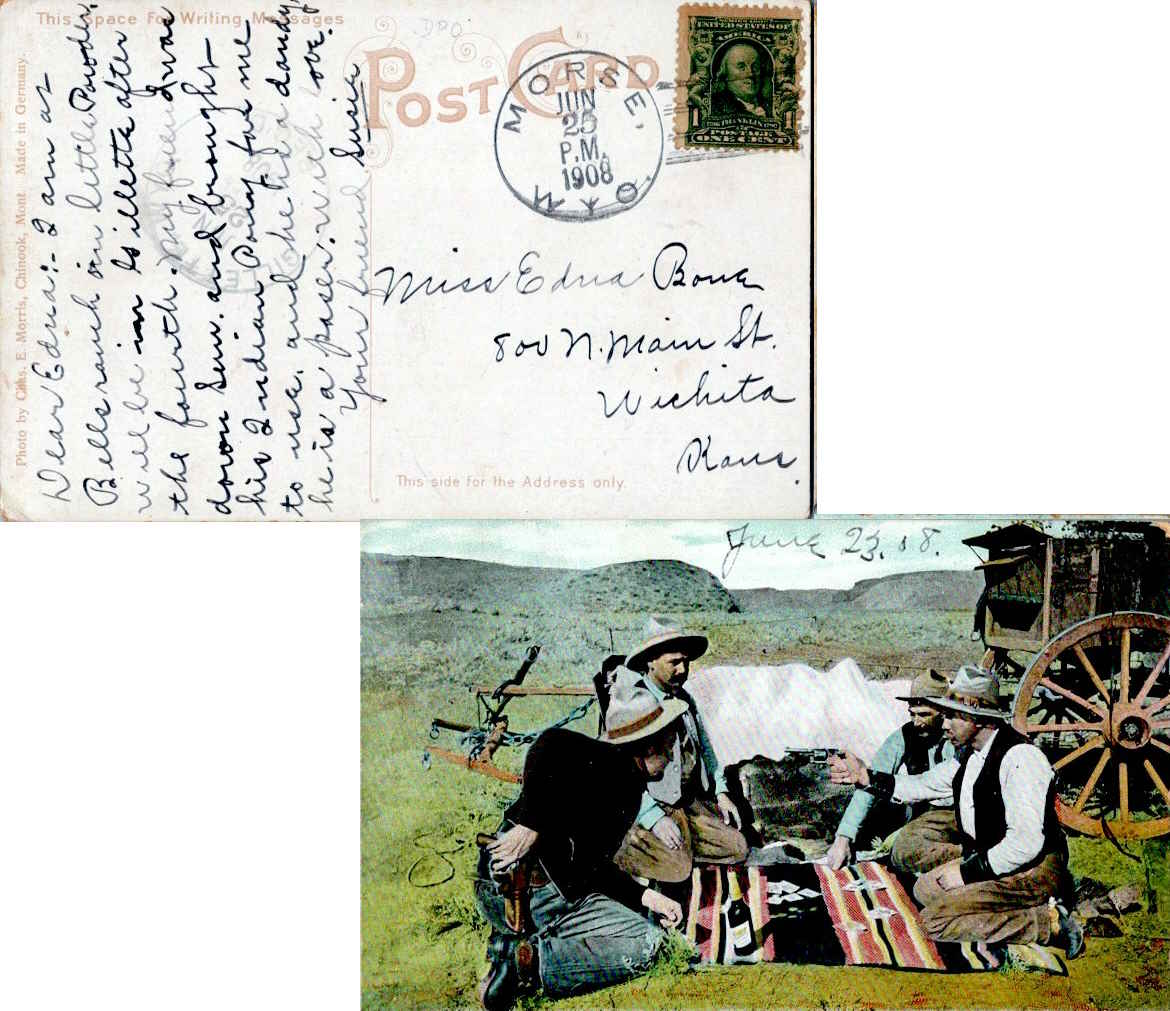 This Space For Writing Messages
DPO
POST CARD
Photo by Chas. E. Morris, Chinook, Mont. Made in Germany.
Dear Edna:- I am at
Bells ranch on little Powder,
will be in Gillette after
the fourth. My friend was
down Sun. and brought
his Indian Pony for me
to use, and he is a dandy,
he is a pacer. With love.
Your friend Susie
MORSE,
JUN
25
P.M.
1908
WYO.
SERIES 1902
UNITED STATES OF
AMERICA
1 FRANKLIN 1790 1
POSTAGE
ONE CENT
Miss Edna Bone
800 N. Main St.
Wichita
Kans.
This side for the Address only.
June 23, 08.